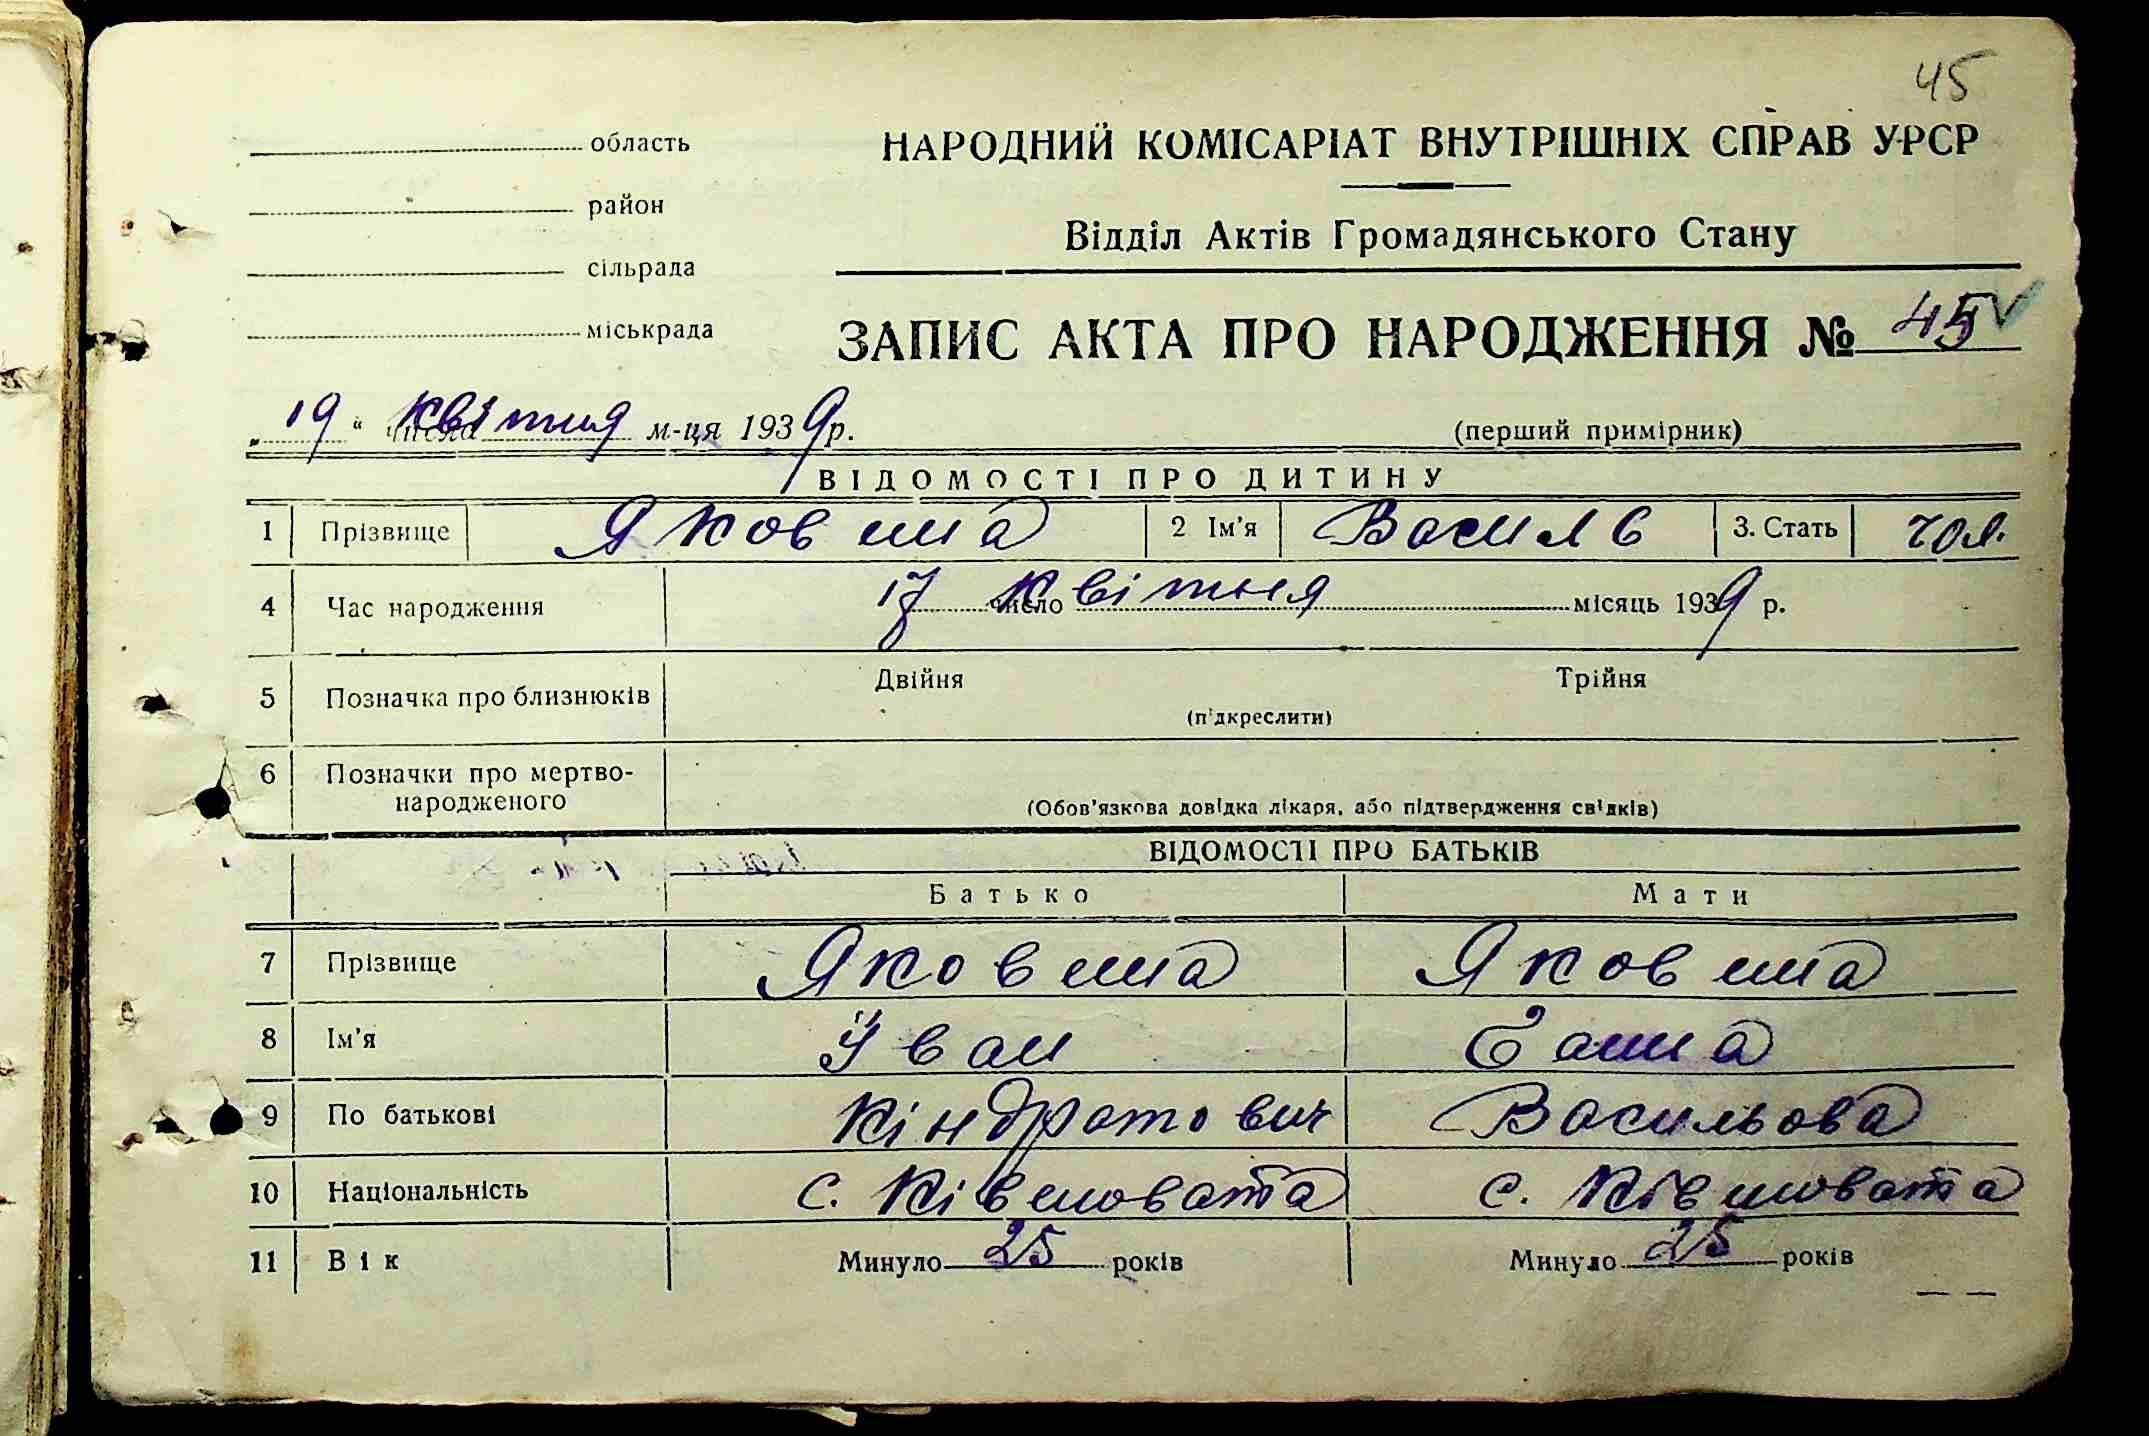 45
область
район
сільрада
міськрада
НАРОДНИЙ КОМІСАРІАТ ВНУТРІШНІХ СПРАВ УРСР
Відділ Актів Громадянського Стану
ЗАПИС АКТА ПРО НАРОДЖЕННЯ № 45
„19“ числа квітня м-ця 1939 р.
(перший примірник)
ВІДОМОСТІ ПРО ДИТИНУ
1 Прізвище Яковина 2 Ім'я Василь 3. Стать чол.
4 Час народження 17 число квітня місяць 1939 р.
5 Позначка про близнюків Двійня Трійня
(підкреслити)
6 Позначки про мертво-
народженого
(Обов'язкова довідка лікаря, або підтвердження свідків)
ВІДОМОСТІ ПРО БАТЬКІВ
Батько Мати
7 Прізвище Яковина Яковина
8 Ім'я Іван Ганна
9 По батькові Кіндратович Васильова
10 Національність с. Ківшовата с. Ківшовата
11 Вік Минуло 25 років Минуло 25 років